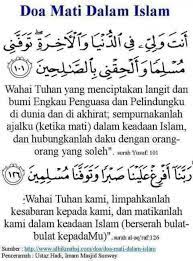 Doa Mati Dalam Islam
أَنتَ وَلِيِّۦ فِي ٱلدُّنْيَا وَٱلْأَخِرَةِ ۖ تَوَفَّنِي
مُسْلِمًا وَأَلْحِقْنِي بِٱلصَّٰلِحِينَ ١٠١
Wahai Tuhan yang menciptakan langit dan
bumi Engkau Penguasa dan Pelindungku
di dunia dan di akhirat; sempurnakanlah
ajalku (ketika mati) dalam keadaan Islam,
dan hubungkanlah daku dengan orang-
orang yang soleh". surah Yusuf: 101
رَبَّنَآ أَفْرِغْ عَلَيْنَا صَبْرًا وَتَوَفَّنَا مُسْلِمِينَ ١٢٦
Wahai Tuhan kami, limpahkanlah
kesabaran kepada kami, dan matikanlah
kami dalam keadaan Islam (berserah bulat-
bulat kepadaMu)". surah al-aq'raf:126
Sumber : http://www.alhikmahaj.com/doa/doa-mati-dalam-islam
Penceramah : Ustaz Hadi, Imam Masjid Sunway